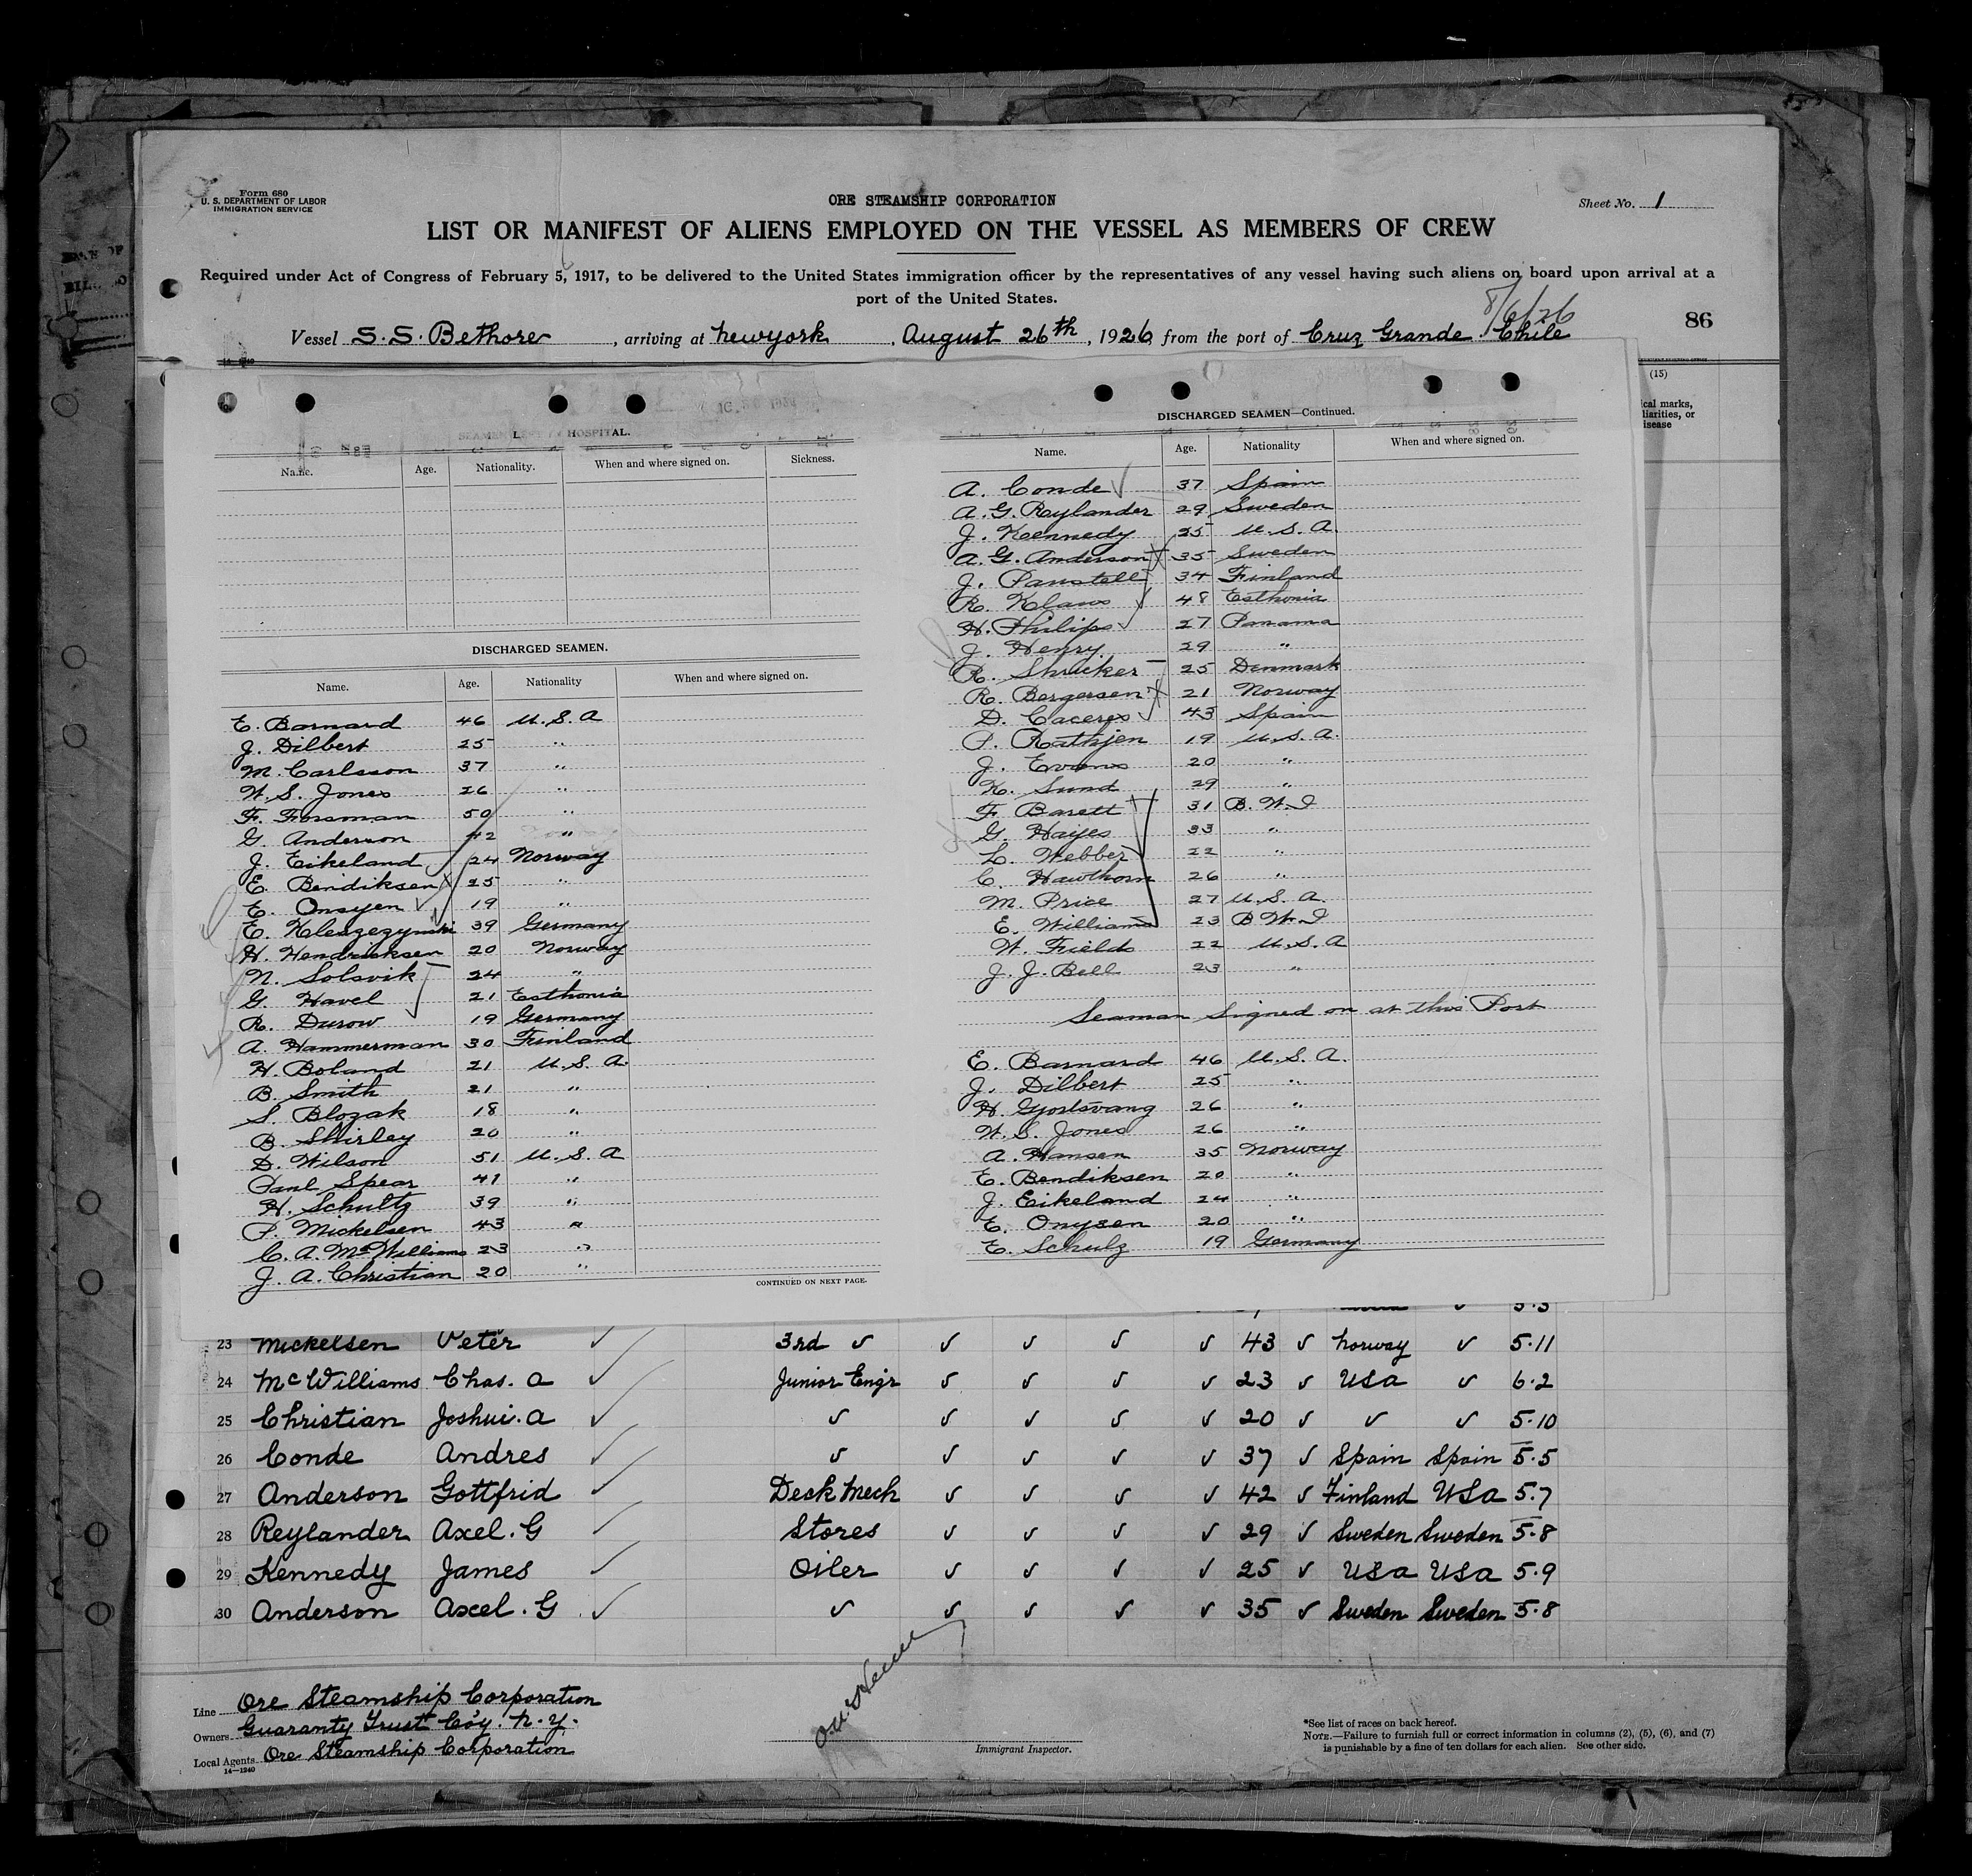 Form 680
U. S. DEPARTMENT OF LABOR
IMMIGRATION SERVICE
ORE STEAMSHIP CORPORATION
Sheet No. 1
LIST OR MANIFEST OF ALIENS EMPLOYED ON THE VESSEL AS MEMBERS OF CREW
Required under Act of Congress of February 5, 1917, to be delivered to the United States immigration officer by the representatives of any vessel having such aliens on board upon arrival at a
port of the United States.
8/6/26
86
Vessel S.S. Bethore, arriving at Newyork, August 26th, 1926, from the port of Cruz Grande. Chile
(15)
cal marks,
liarities, or
isease
HOSPITAL.
Name. Age. Nationality. When and where signed on. Sickness.
DISCHARGED SEAMEN.
Name. Age. Nationality When and where signed on.
E. Barnard 46 U.S.A
J. Dilbert 25 "
M. Carlsson 37 "
W. S. Jones 26 "
F. Forsman 50 "
G. Anderson 42 "
J. Eikeland 24 Norway
E. Bendiksen 25 "
E. Onsyen 19 "
E. Kleazezynski 39 Germany
H. Hendricksen 20 Norway
N. Solsvik 24 "
G. Havel 21 Esthonia
R. Durow 19 Germany
A. Hammerman 30 Finland
H. Boland 21 U.S.A.
B. Smith 21 "
S. Blozak 18 "
B. Shirley 20 "
D. Wilson 51 U.S.A
Paul Spear 41 "
H. Schultz 39 "
P. Mickelsen 43 "
C. A. McWilliams 23 "
J. A. Christian 20 "
CONTINUED ON NEXT PAGE.
DISCHARGED SEAMEN—Continued.
Name. Age. Nationality When and where signed on.
A. Conde 37 Spain
A. G. Reylander 29 Sweden
J. Kennedy 25 U.S.A.
A. G. Anderson 35 Sweden
J. Panstell 34 Finland
R. Klaws 48 Esthonia
H. Philips 27 Panama
J. Henry 29 "
R. Shucker 25 Denmark
R. Bergersen 21 Norway
D. Caceres 43 Spain
P. Rathjen 19 U.S.A.
J. Evans 20 "
K. Sund 29 "
F. Barett 31 B.W.I
G. Hayes 33 "
L. Webber 22 "
C. Hawthorn 26 "
M. Price 27 U.S.A.
E. Williams 23 B.W.I
W. Fields 22 U.S.A
J. J. Bell 23 "
Seaman Signed on at this Port
E. Barnard 46 U.S.A.
J. Dilbert 25 "
H. Gjortsvang 26 "
W. S. Jones 26 "
A. Hansen 35 Norway
E. Bendiksen 20 "
J. Eikeland 24 "
E. Onysen 20 "
E. Schulz 19 Germany
5.5
23 Mickelsen Peter ✓ 3rd ✓ ✓ ✓ ✓ ✓ 43 ✓ Norway ✓ 5.11
24 McWilliams Chas. A ✓ Junior Engr ✓ ✓ ✓ ✓ 23 ✓ USA ✓ 6.2
25 Christian Joshui. A ✓ ✓ ✓ ✓ ✓ ✓ 20 ✓ ✓ ✓ 5.10
26 Conde Andres ✓ ✓ ✓ ✓ ✓ ✓ 37 ✓ Spain Spain 5.5
27 Anderson Gottfrid ✓ Deck Mech ✓ ✓ ✓ ✓ 42 ✓ Finland USA 5.7
28 Reylander Axel. G ✓ Stores ✓ ✓ ✓ ✓ 29 ✓ Sweden Sweden 5.8
29 Kennedy James ✓ Oiler ✓ ✓ ✓ ✓ 25 ✓ USA USA 5.9
30 Anderson Axel. G ✓ ✓ ✓ ✓ ✓ ✓ 35 ✓ Sweden Sweden 5.8
Line Ore Steamship Corporation
Owners Guaranty Trust Coy. N.Y.
Local Agents Ore Steamship Corporation
14—1240
Immigrant Inspector.
*See list of races on back hereof.
NOTE.—Failure to furnish full or correct information in columns (2), (5), (6), and (7)
is punishable by a fine of ten dollars for each alien. See other side.